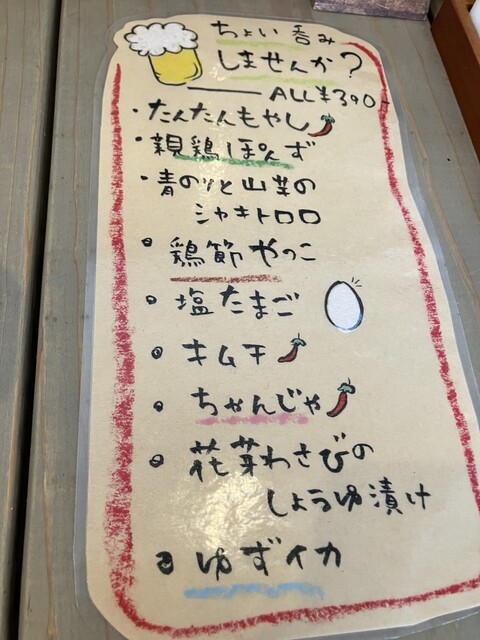 ちょい呑み
しませんか?
ALL¥390-
・たんたんもやし
・親鶏ぽんず
・青のりと山芋の
シャキトロロ
・鶏節やっこ
・塩たまご
・キムチ
・ちゃんじゃ
・花芽わさびの
しょうゆ漬け
・ゆずイカ